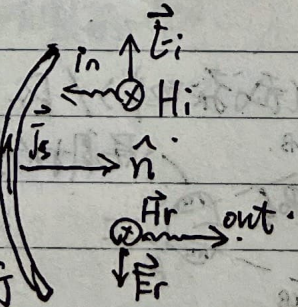 E⃗i
in
Hi
J⃗s
n̂
H⃗r out.
E⃗r